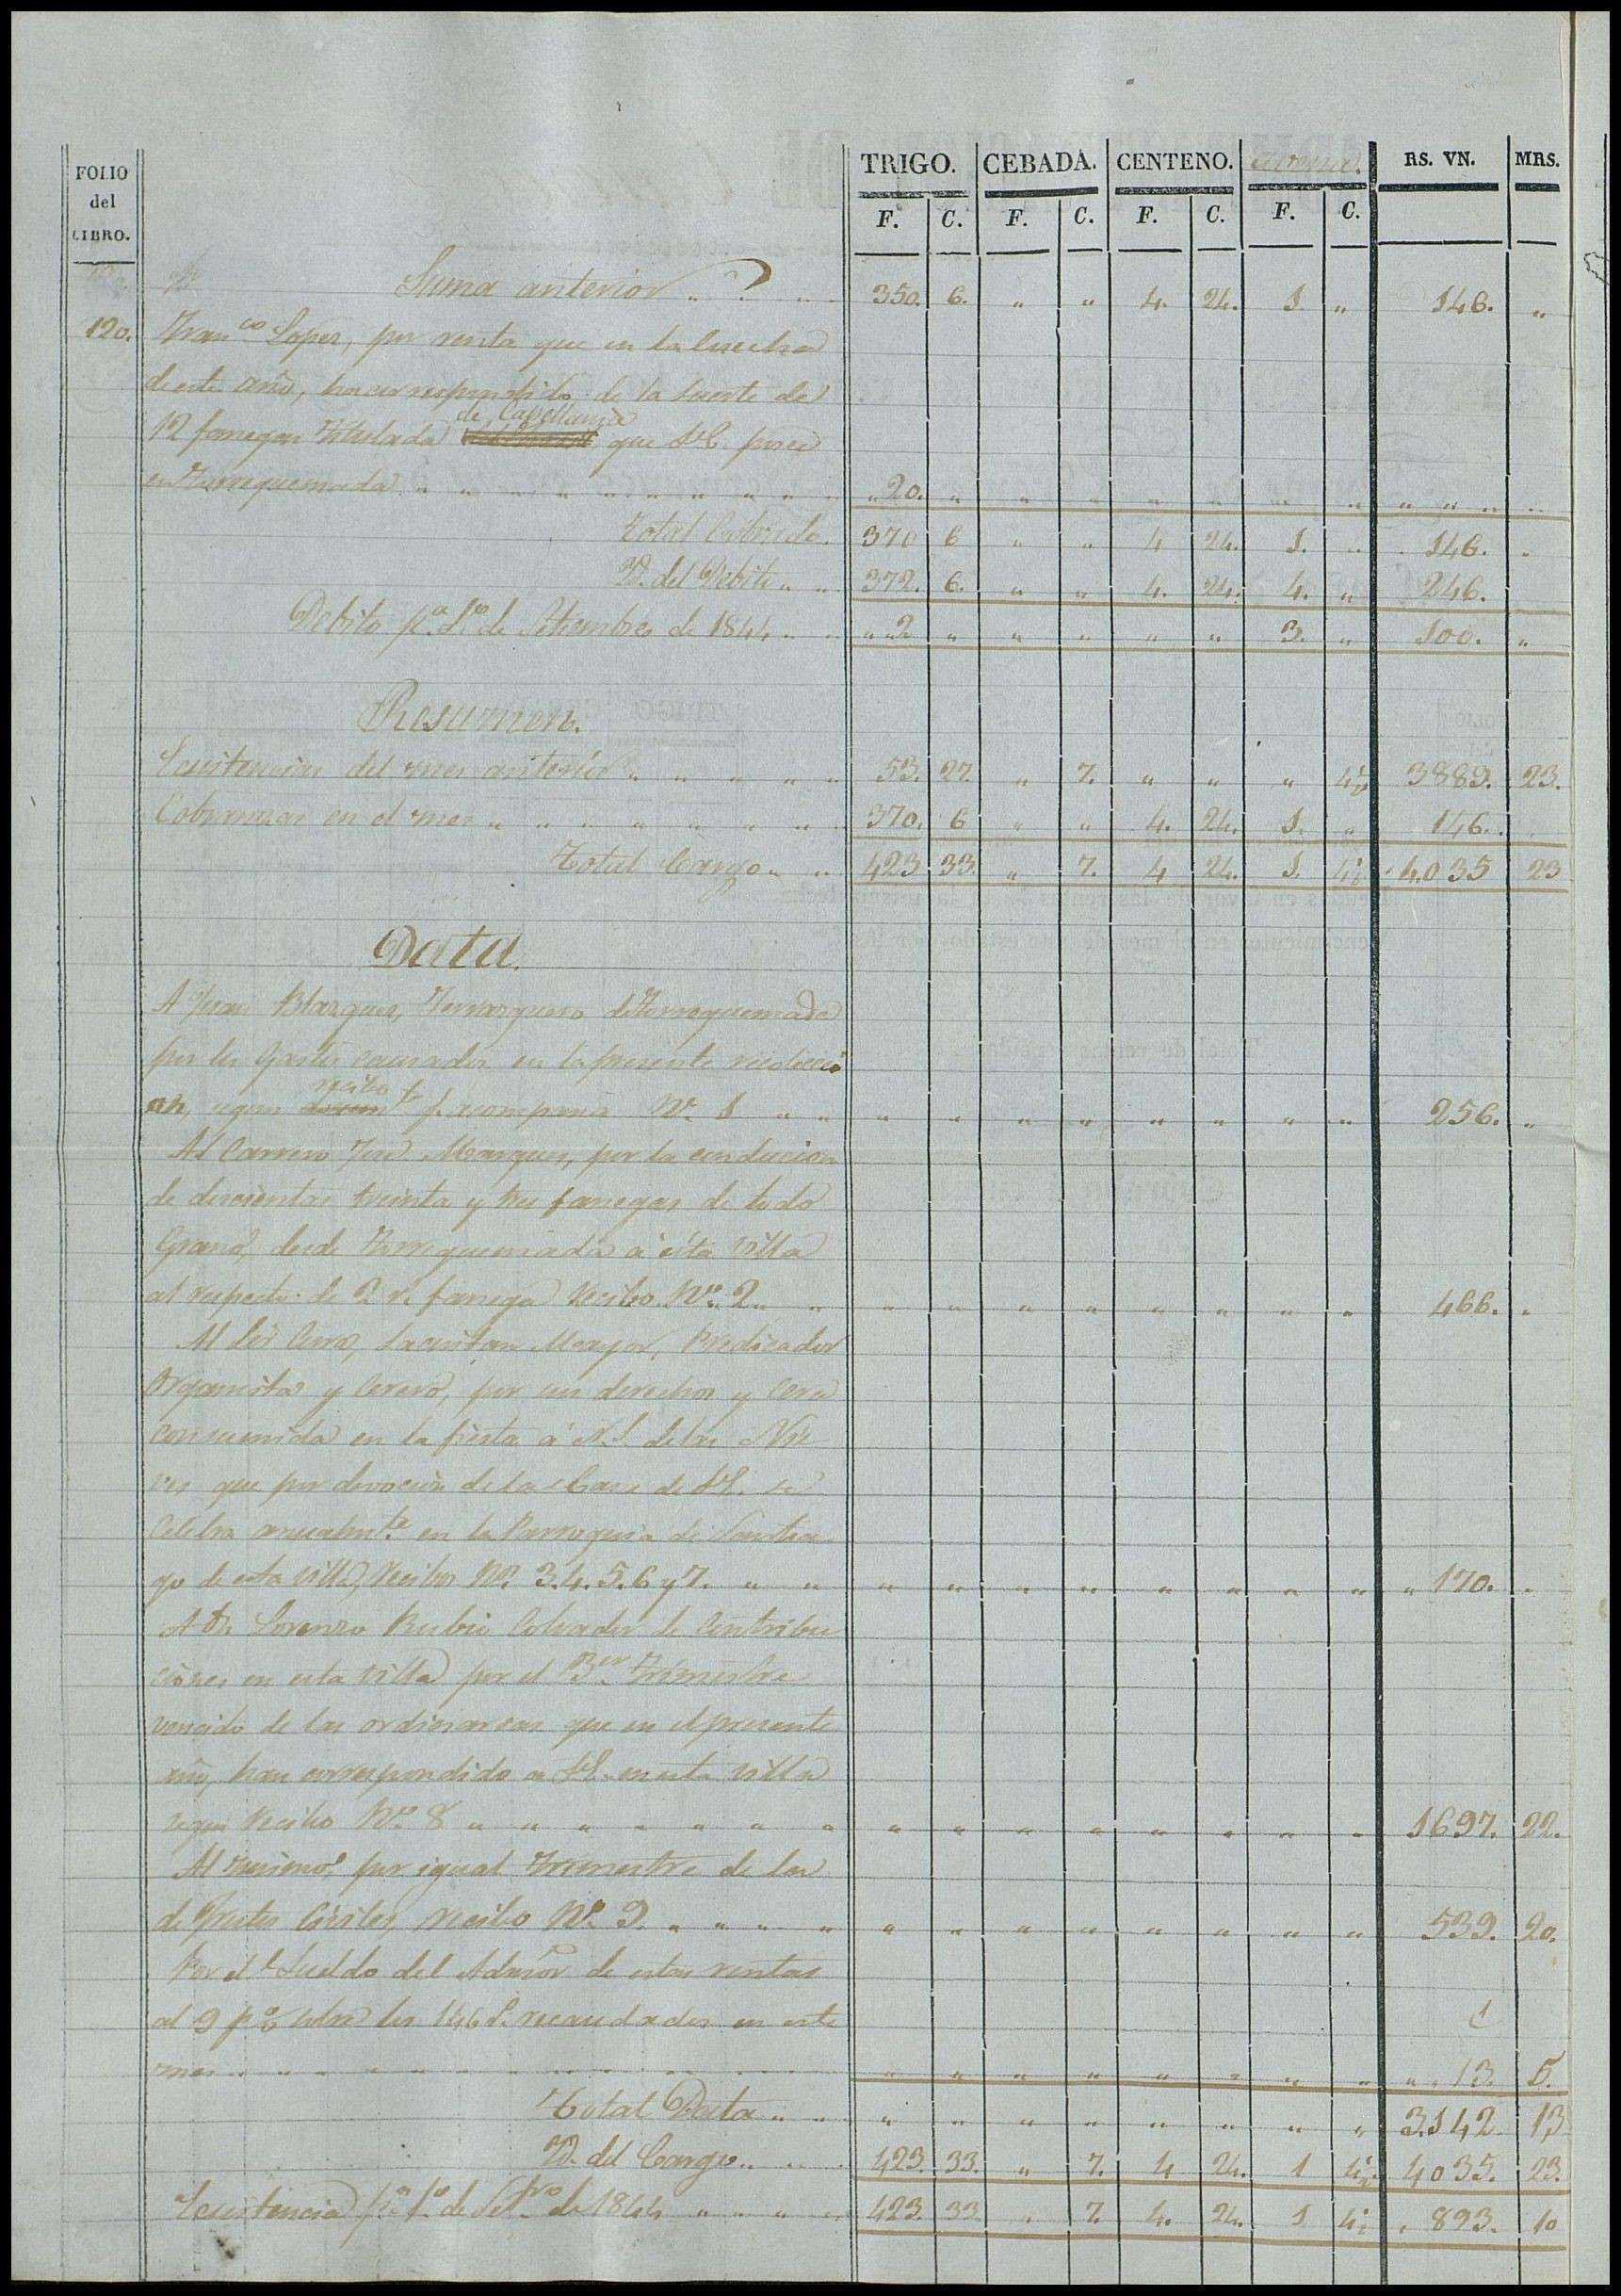 FOLIO del LIBRO. TRIGO. CEBADA. CENTENO. avena. RS. VN. MRS.
F. C. F. C. F. C. F. C.
Suma anterior „ „ „ 350. 6. „ „ 4. 24. 1. „ 146. „
120. Fran.co Lopez, por renta que en la cosecha
de este año, ha correspondido de la suerte de
12 fanegas titulada de Capellania que S.E. posee
en Torrequemada „ 20. „ „ „ „ „ „ „ „ „
Total Cobrado. 370 6 „ „ 4 24. 1. „ 146. „
Yd. del Debito „ „ 372. 6. „ „ 4. 24. 4. „ 246.
Debito p.a 1.o de Setiembre de 1844 „ „ 2 „ „ „ „ „ 3. „ 100. „
Resumen.
Ecsistencias del mes anterior „ „ „ „ „ 53. 27. „ 7. „ „ „ 4½ 3889. 23.
Cobranzas en el mes „ „ „ „ „ „ „ „ 370. 6 „ „ 4. 24. 1. „ 146. .
Total Cargo „ „ 423 33. „ 7. 4 24. 1. 4½ 4.035 23
Data.
A Juan Blazquez, Terrazguero de Torrequemada
por los gastos causados en la presente recolecció
on, segun recibo q. acompaña N.o 1 „ „ „ „ „ „ „ „ „ „ 256. „
Al Carrero José Marques, por la conducion
de doscientas treinta y tres fanegas de todo
Grano, desde Torrequemada á esta Villa
al respecto de 2 r.s fanega Recibo N.o 2 „ „ „ „ „ „ „ „ „ „ 466. „
Al Sór Cura, Sacristan Mayor, Predicador
Organista y Cerero, por sus derechos y cera
consumida en la fiesta á N.S. de las Nie
ves que por devocion de la Casa de S.E. se
celebra anualm.te en la Parroquia de Santia
go de esta villa, Recibos N.o 3. 4. 5. 6 y 7. „ „ „ „ „ „ „ „ „ „ „ 170. „
A D.n Lorenzo Rubio Cobrador de Contribu
ciones en esta Villa por el 3.er Trimestre
vencido de las ordinarias que en el presente
año, han correspondido a S.E. en esta Villa
segun Recibo N.o 8 „ „ „ „ „ „ „ „ „ „ „ „ „ „ „ 1697. 22.
Al mismo, por igual trimestre de los
de Frutos Civiles, recibo N.o 9. „ „ „ „ „ „ „ „ „ „ „ „ 539. 20.
Por el Sueldo del Admór de estas rentas
al 9 p.% sobre los 146 r.s recaudados en este
mes „ „ „ „ „ „ „ „ „ „ „ „ „ „ „ „ „ „ 13. 5.
Total Data „ „ „ „ „ „ „ „ „ „ 3.142. 13
Yd. del Cargo „ „ 423. 33. „ 7. 4 24. 1 4½ 4035. 23.
Ecsistencia p.a 1.o de Set.bre de 1844 „ „ „ „ 423. 33 „ 7. 4. 24. 1 4½ „ 893. 10